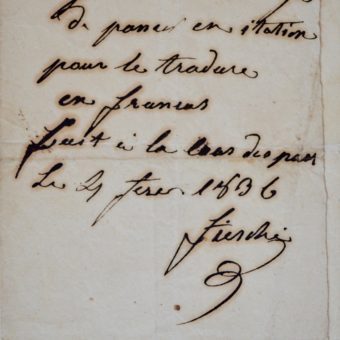 de pances en itation
pour le tradure
en francus
fait à la cour des pair
Le 4 fevr 1836
fieschi